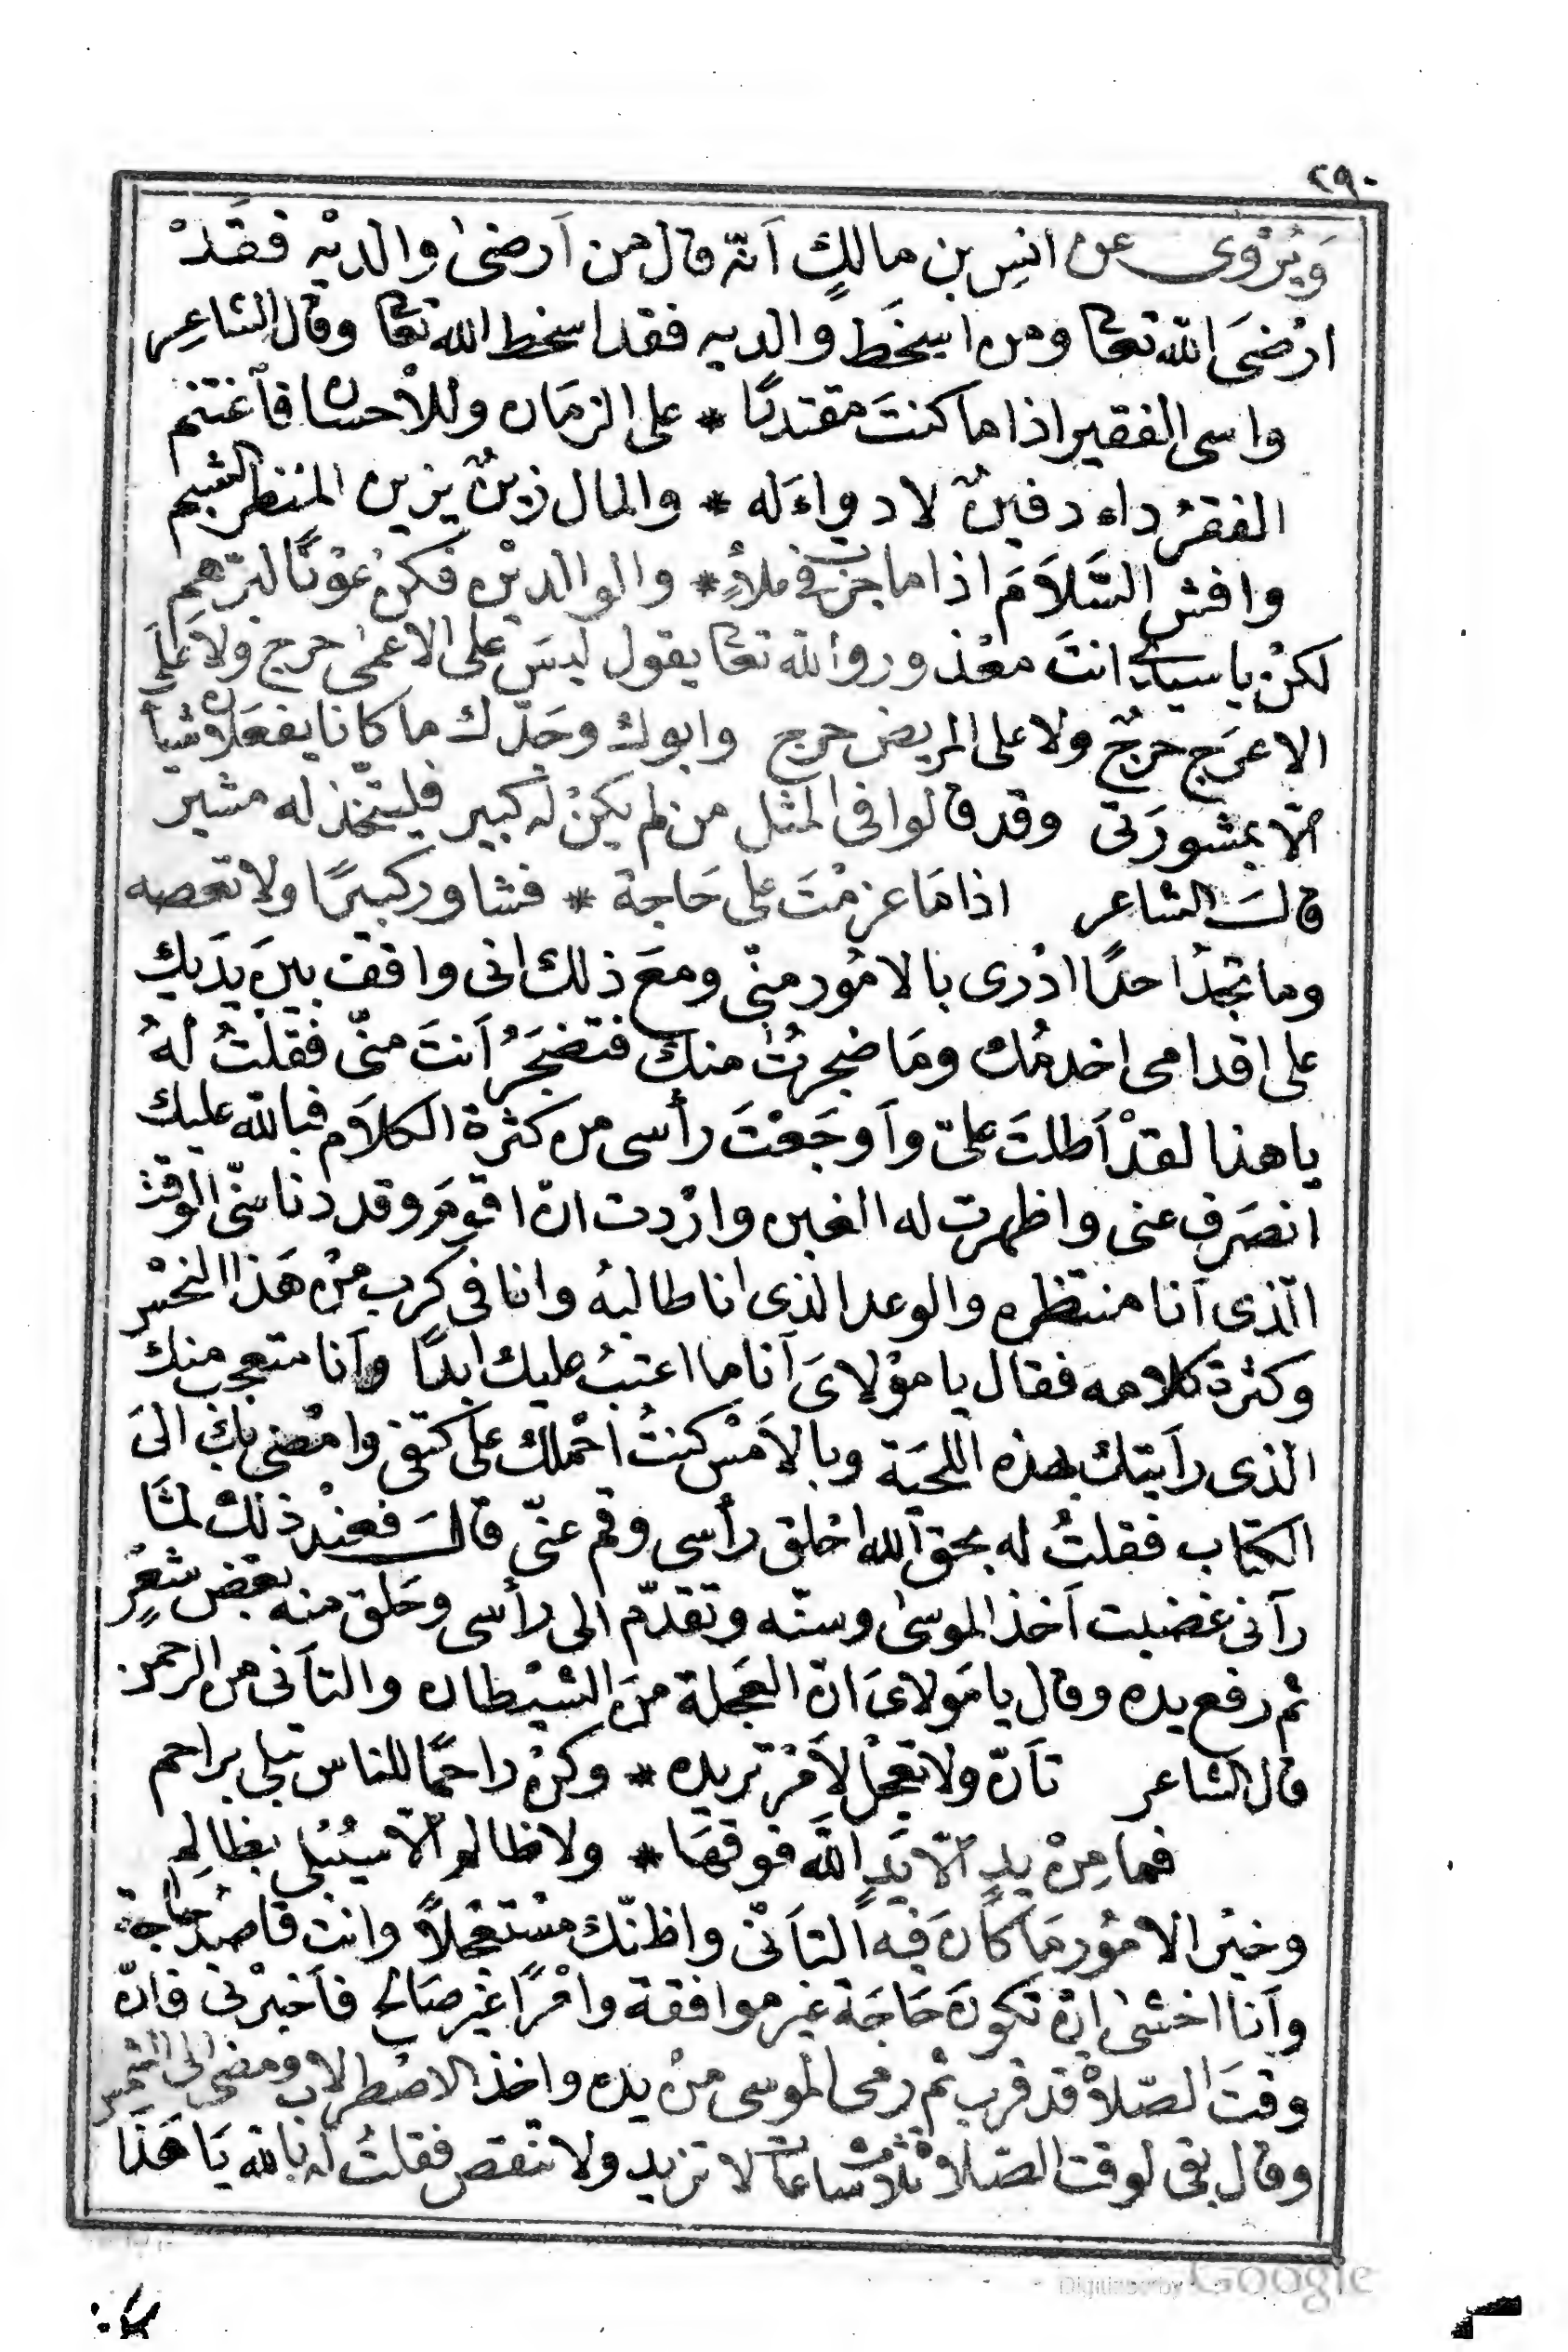 ٢٩٠
وَيُرْوى عن انسِ بن مالكٍ اَنّه قال من اَرضىٰ والديْهِ فقَدْ
ارْضىَ اللّه تعالى ومن اسخَط والديه فقد اسخط الله تعالى وقال الشاعِر
واسى الفقير اذا ما كنتَ مقتدرًا * على الزمَان وللاْحسان فاَغتنم
الفقرُ داء دفينٌ لا دواءَ له * والمال زينٌ يزين المنظر الشبم
وافشِ السَّلاَمَ اذا ما جزت فى ملأٍ * والوالديْن فكنْ عوْنًا لبرّهم
لكنْ يا سيدى انتَ معْذور والله تعالى يقول ليسَ على الاعمىٰ حرج ولاَ علىَ
الاعرَجِ حرجٌ ولا على المريض حرج وابوك وجَدّك ما كانا يفعَلان شياً
الّا بمشورَتى وقد قالوا فى المثل من لم يكنْ له كبير فليتّخذ له مشير
قالـَ الشاعر اذا مَا عزمْتَ على حَاجة * فشاور كبيرًا ولا تعصه
وما تجدُ احدًا ادْرى بالامُور منّى ومعَ ذلك انى واقف بينَ يدَيك
على اقدامى اخدمُك ومَا ضجرتُ منكَ فتضجَرُ اَنتَ منّى فقلتُ لهُ
يا هذا لقدْ اَطلتَ علىّ واَوجَعْتَ رأسى من كثرة الكلاَم فبالله عليك
انصَرف عنى واظهرت له الغبن وارْدت انّ اقومَ وقد دنا منّى الوقت
الّذى اَنا منتظره والوعد الذى انا طالبهُ وانا فى كرب منْ هَذا النحْس
وكثرة كلامه فقال يا موْلاىَ اَنا ما اعتبُ عليك ابدًا واَنا متعجب منك
الذى رأَيتك بهذه اللحيَة وبالاَمْس كنتُ احْملك على كتفى وامْضى بكَ الىَ
الكتاب فقلتُ له بحقّ الله احْلق رأسى وقم عنّى قالـَ فعنْد ذلكَ لمّا
رآنى غضبت اَخذ الموسىٰ وسنّه وتقدّم الى رأسى وحَلق منه بعْض شعْرٍ
ثم رفع يده وقال يا مَولاىَ انّ العَجلة منَ الشيْطان والتاَنى من الرحمن
قال الشاعر تأَنّ ولا تعْجلْ لاَمْرٍ تريده * وكنْ راحمًا للناس تبلى براحم
فما مِنْ يدٍ الّا يَدُ اللَّه فوقهَا * ولا ظالمٍ الّا سيُبْلى بظالم
وخيْر الامُور مَا كانَ فيَه التاَنّى واظنّك مسْتعْجلاً وانت قاصد حاجة
واَنا اخشىٰ انْ تكونَ حَاجَة غير موافقة وامْرًا غيْر صَالح فاَخبرْنى فانّ
وقتَ الصّلاةْ قد قرب ثم رمى الموسى منْ يده واخذ الاصْطرلاب ومضى الى الشمس
وقال بقى لوقت الصّلاةْ ثلاث ساعات لا تزيد ولا تنقص فقلتُ له بالله يَا هَذا
Digitized by Google